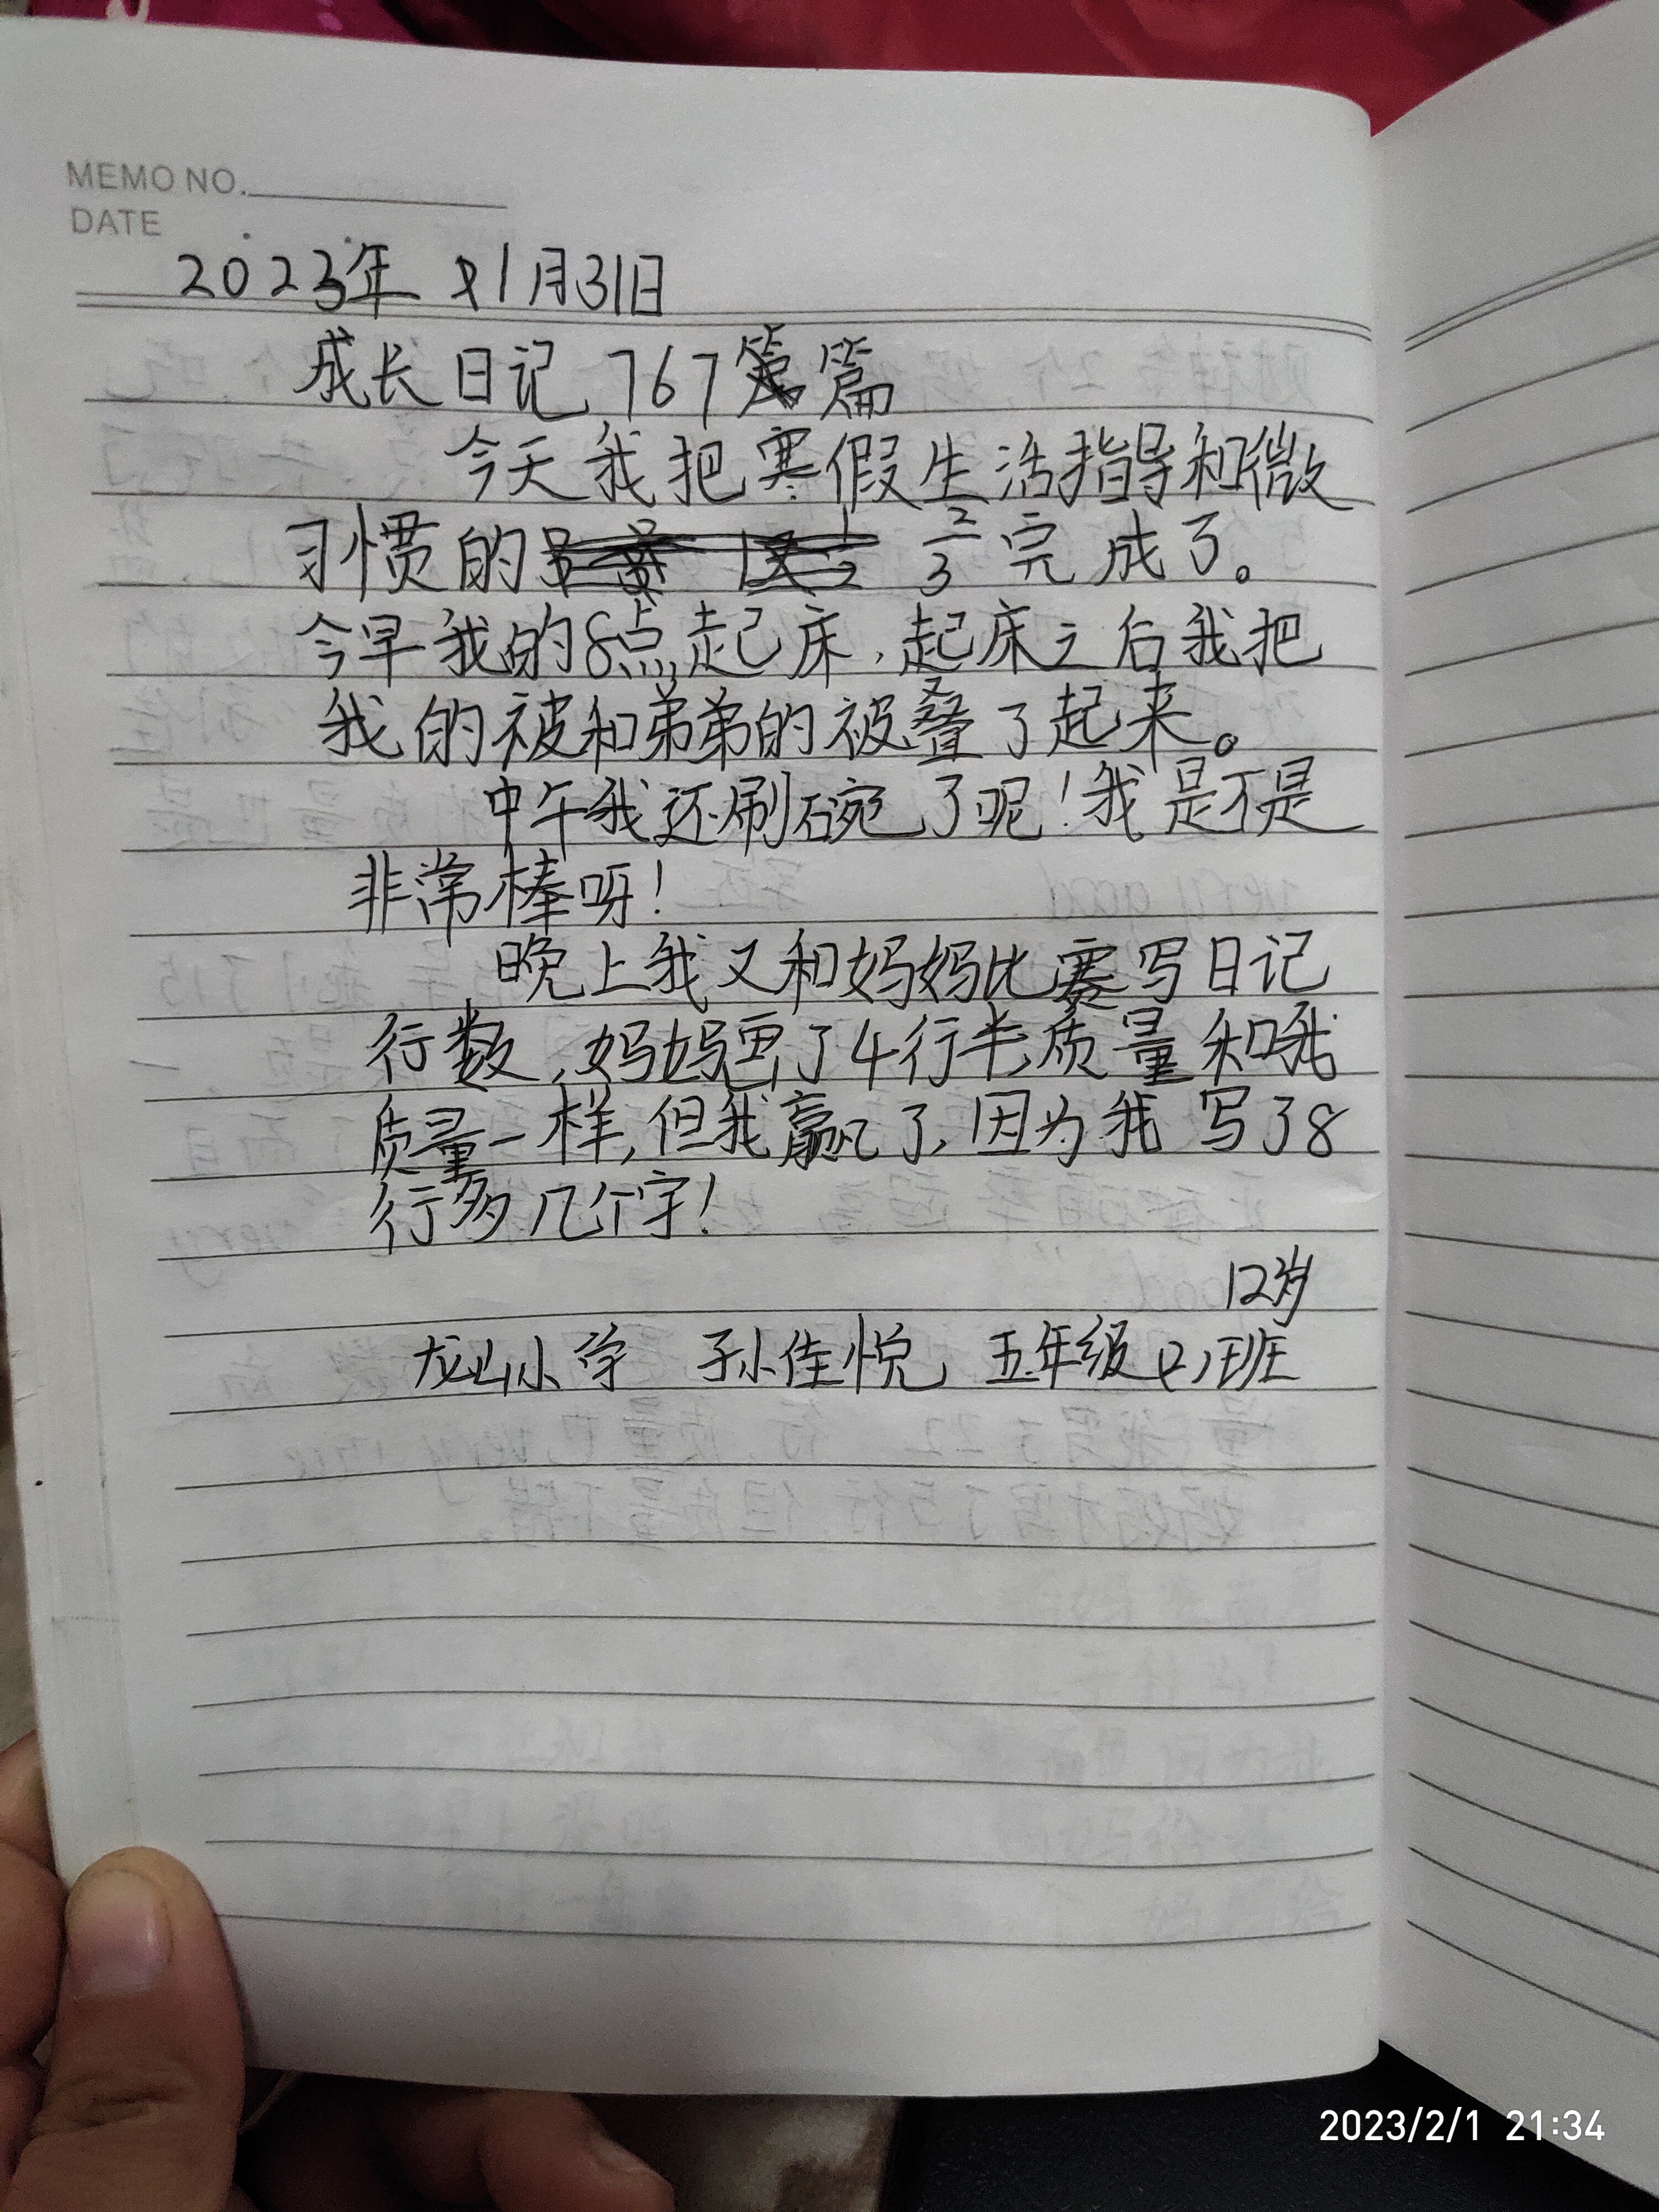 MEMO NO.
DATE
2023年 1月31日
成长日记 767篇
今天我把寒假生活指导和微
习惯的 2/3 完成了。
今早我的8点起床,起床之后我把
我的被和弟弟的被叠了起来。
中午我还刷碗了呢!我是不是
非常棒呀!
晚上我又和妈妈比赛写日记
行数,妈妈画了4行半质量和我
质量一样,但我赢了,因为我写了8
行多几个字!
12岁
龙山小学 孙佳悦 五年级(2)班
2023/2/1 21:34